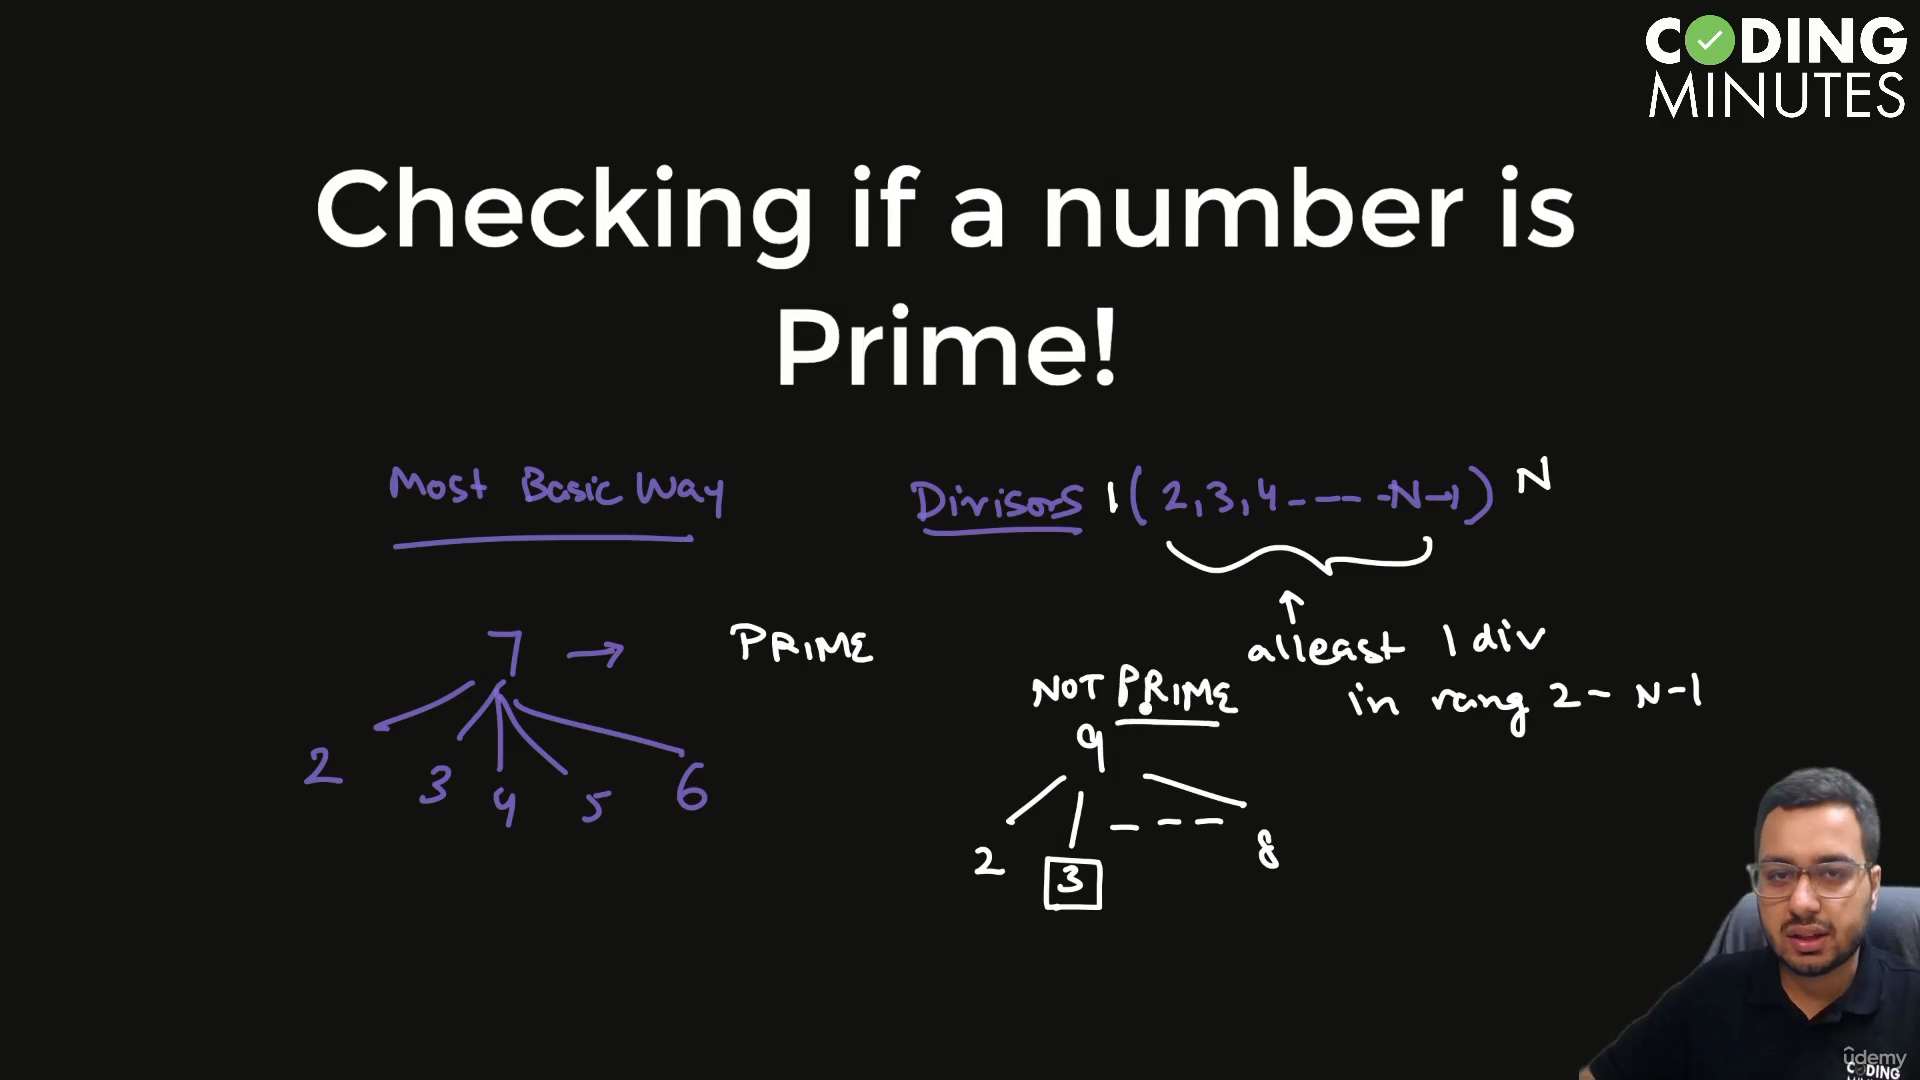 CODING
MINUTES
Checking if a number is
Prime!
Most Basic Way
Divisors 1 ( 2, 3, 4 - - - - N-1 ) N
7 → PRIME
2 3 4 5 6
alleast 1 div
in rang 2 - N-1
NOT PRIME
9
2 3 - - - 8
ûdemy
CODING